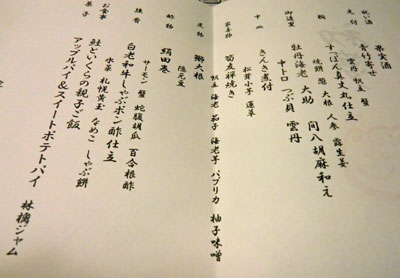 祝い酒 果実酒
先付 青竹寄せ
雲丹 帆立 蟹
椀 すっぽん真丈丸仕立
焼餅 葱 大根 人参 露生姜
御造里 牡丹海老 大助 間八胡麻和え
中トロ つぶ貝 雲丹
中皿 きんき煮付
松茸 小芋
友禅焼き
帆立 茄子 海老芋 パプリカ 柚子味噌
大根
隠元豆
酢物 絹田巻
サーモン 蟹 蛇腹胡瓜 百合根酢
強肴 白老和牛しゃぶポン酢仕立
水菜 札幌黄玉 なめこ しゃぶ餅
お食事 鮭といくらの親子ご飯
菓子 アップルパイ&スイートポテトパイ 林檎ジャム